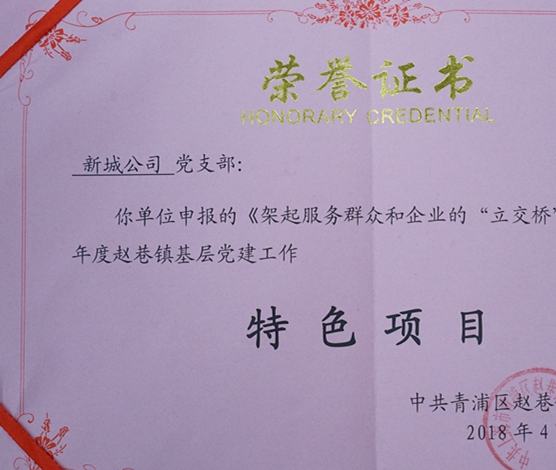 荣誉证书
HONORARY CREDENTIAL
新城公司 党支部:
你单位申报的《架起服务群众和企业的“立交桥”
年度赵巷镇基层党建工作
特色项目
中共青浦区赵巷
2018年4